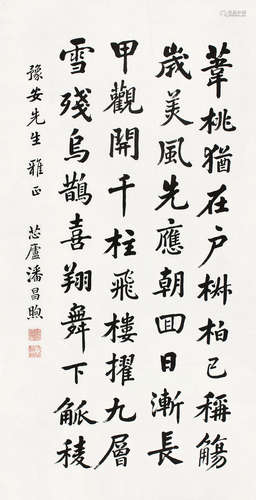 葦桃猶在户椒柏已稱觴
歲美風先應朝回日漸長
甲觀開千柱飛樓擢九層
雪殘烏鵲喜翔舞下觚稜
豫安先生雅正
芯廬潘昌煦